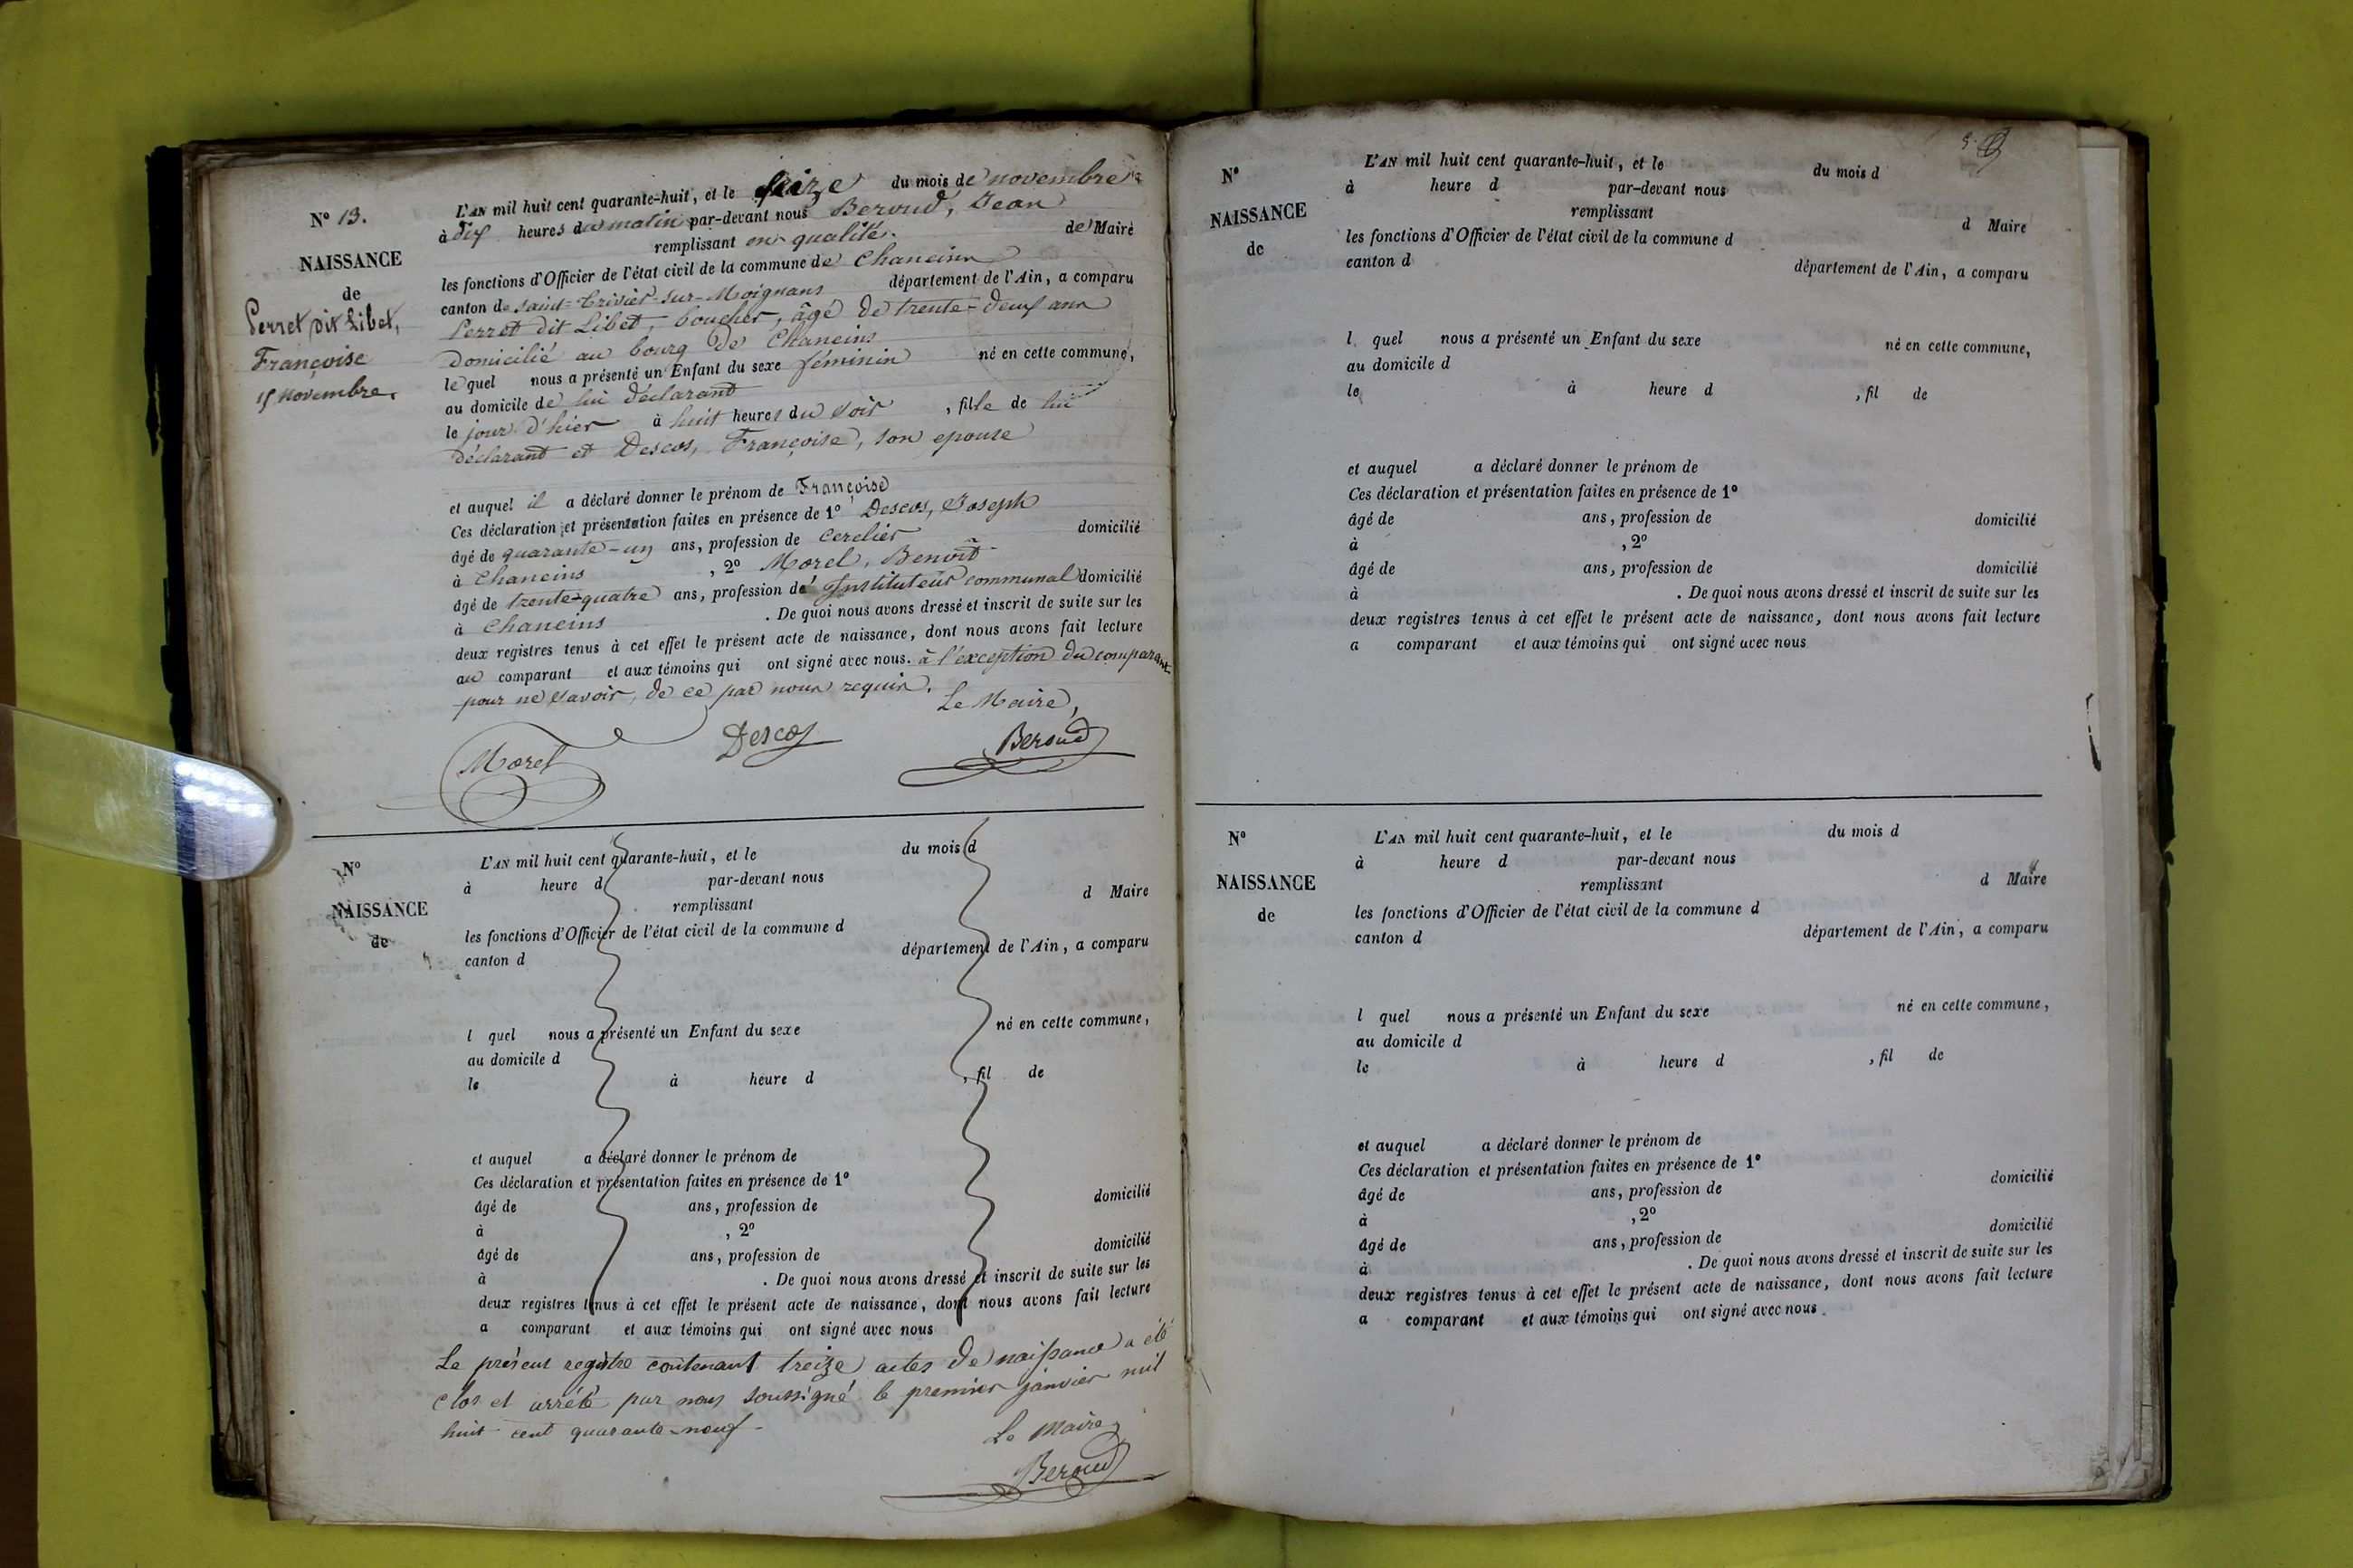 N° 13.
NAISSANCE
de
Perret dit Libet,
Françoise
15 Novembre.
L'AN mil huit cent quarante-huit, et le seize du mois de novembre
à dix heures du matin par-devant nous Beroud, Jean
remplissant en qualité de Maire
les fonctions d'Officier de l'état civil de la commune de Chaneins
canton de Saint-Trivier-sur-Moignans département de l'Ain, a comparu
Perret dit Libet, boucher, âgé de trente-deux ans
domicilié au bourg de Chaneins
lequel nous a présenté un Enfant du sexe féminin né en cette commune,
au domicile de lui déclarant
le jour d'hier à huit heures du soir, fille de lui
déclarant et Descos, Françoise, son epouse
et auquel il a déclaré donner le prénom de Françoise
Ces déclaration et présentation faites en présence de 1° Descos, Joseph
âgé de quarante-un ans, profession de cerclier domicilié
à Chaneins, 2° Morel, Benoît
âgé de trente-quatre ans, profession de Instituteur communal domicilié
à Chaneins. De quoi nous avons dressé et inscrit de suite sur les
deux registres tenus à cet effet le présent acte de naissance, dont nous avons fait lecture
au comparant et aux témoins qui ont signé avec nous. à l'exception du comparant
pour ne savoir, de ce par nous requis.
Le Maire,
Morel Descos Beroud
N°
NAISSANCE
de
L'AN mil huit cent quarante-huit, et le du mois d
à heure d par-devant nous
remplissant d Maire
les fonctions d'Officier de l'état civil de la commune d
canton d département de l'Ain, a comparu
l quel nous a présenté un Enfant du sexe né en cette commune,
au domicile d
le à heure d , fil de
et auquel a déclaré donner le prénom de
Ces déclaration et présentation faites en présence de 1°
âgé de ans, profession de domicilié
à , 2°
âgé de ans, profession de domicilié
à . De quoi nous avons dressé et inscrit de suite sur les
deux registres tenus à cet effet le présent acte de naissance, dont nous avons fait lecture
a comparant et aux témoins qui ont signé avec nous
Le présent registre contenant treize actes de naissance a été
clos et arrêté par nous soussigné le premier janvier mil
huit cent quarante-neuf.
Le Maire,
Beroud
N°
NAISSANCE
de
L'AN mil huit cent quarante-huit, et le du mois d
à heure d par-devant nous
remplissant d Maire
les fonctions d'Officier de l'état civil de la commune d
canton d département de l'Ain, a comparu
l quel nous a présenté un Enfant du sexe né en cette commune,
au domicile d
le à heure d , fil de
et auquel a déclaré donner le prénom de
Ces déclaration et présentation faites en présence de 1°
âgé de ans, profession de domicilié
à , 2°
âgé de ans, profession de domicilié
à . De quoi nous avons dressé et inscrit de suite sur les
deux registres tenus à cet effet le présent acte de naissance, dont nous avons fait lecture
a comparant et aux témoins qui ont signé avec nous
N°
NAISSANCE
de
L'AN mil huit cent quarante-huit, et le du mois d
à heure d par-devant nous
remplissant d Maire
les fonctions d'Officier de l'état civil de la commune d
canton d département de l'Ain, a comparu
l quel nous a présenté un Enfant du sexe né en cette commune,
au domicile d
le à heure d , fil de
et auquel a déclaré donner le prénom de
Ces déclaration et présentation faites en présence de 1°
âgé de ans, profession de domicilié
à , 2°
âgé de ans, profession de domicilié
à . De quoi nous avons dressé et inscrit de suite sur les
deux registres tenus à cet effet le présent acte de naissance, dont nous avons fait lecture
a comparant et aux témoins qui ont signé avec nous.